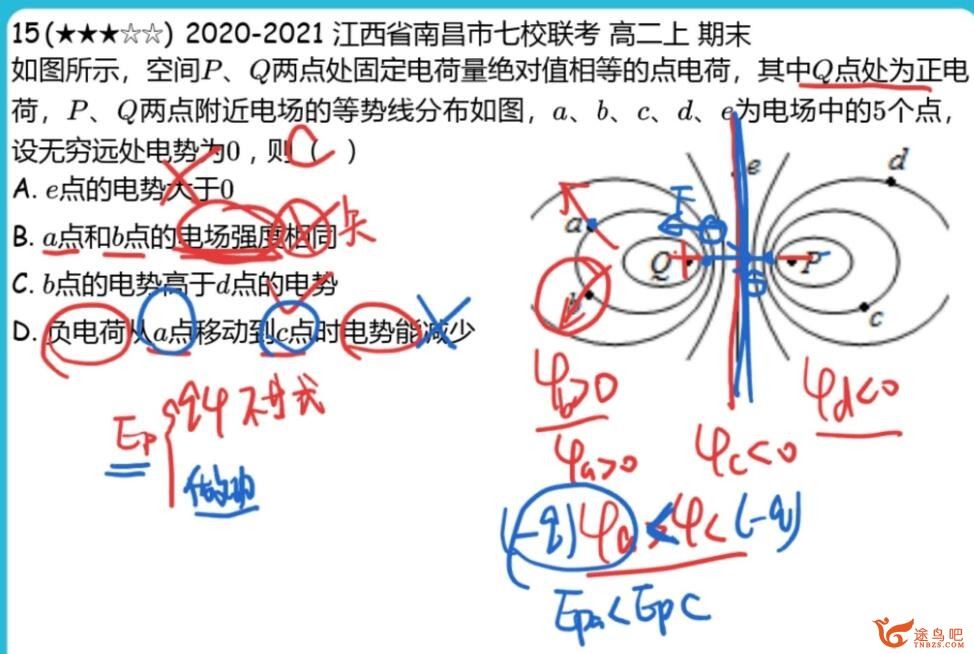 15(★★★☆☆) 2020-2021 江西省南昌市七校联考 高二上 期末
如图所示，空间P、Q两点处固定电荷量绝对值相等的点电荷，其中Q点处为正电
荷，P、Q两点附近电场的等势线分布如图，a、b、c、d、e为电场中的5个点，
设无穷远处电势为0，则（ C ）
A. e点的电势大于0
B. a点和b点的电场强度相同 矢
C. b点的电势高于d点的电势
D. 负电荷从a点移动到c点时电势能减少
e
d
F
a
Q
P
b
c
φb>0
φd<0
qφ 不等式
Ep
φa>0
φc<0
做功
(-q)φa<φc(-q)
Epa<Epc
途鸟吧
TNBZS.COM